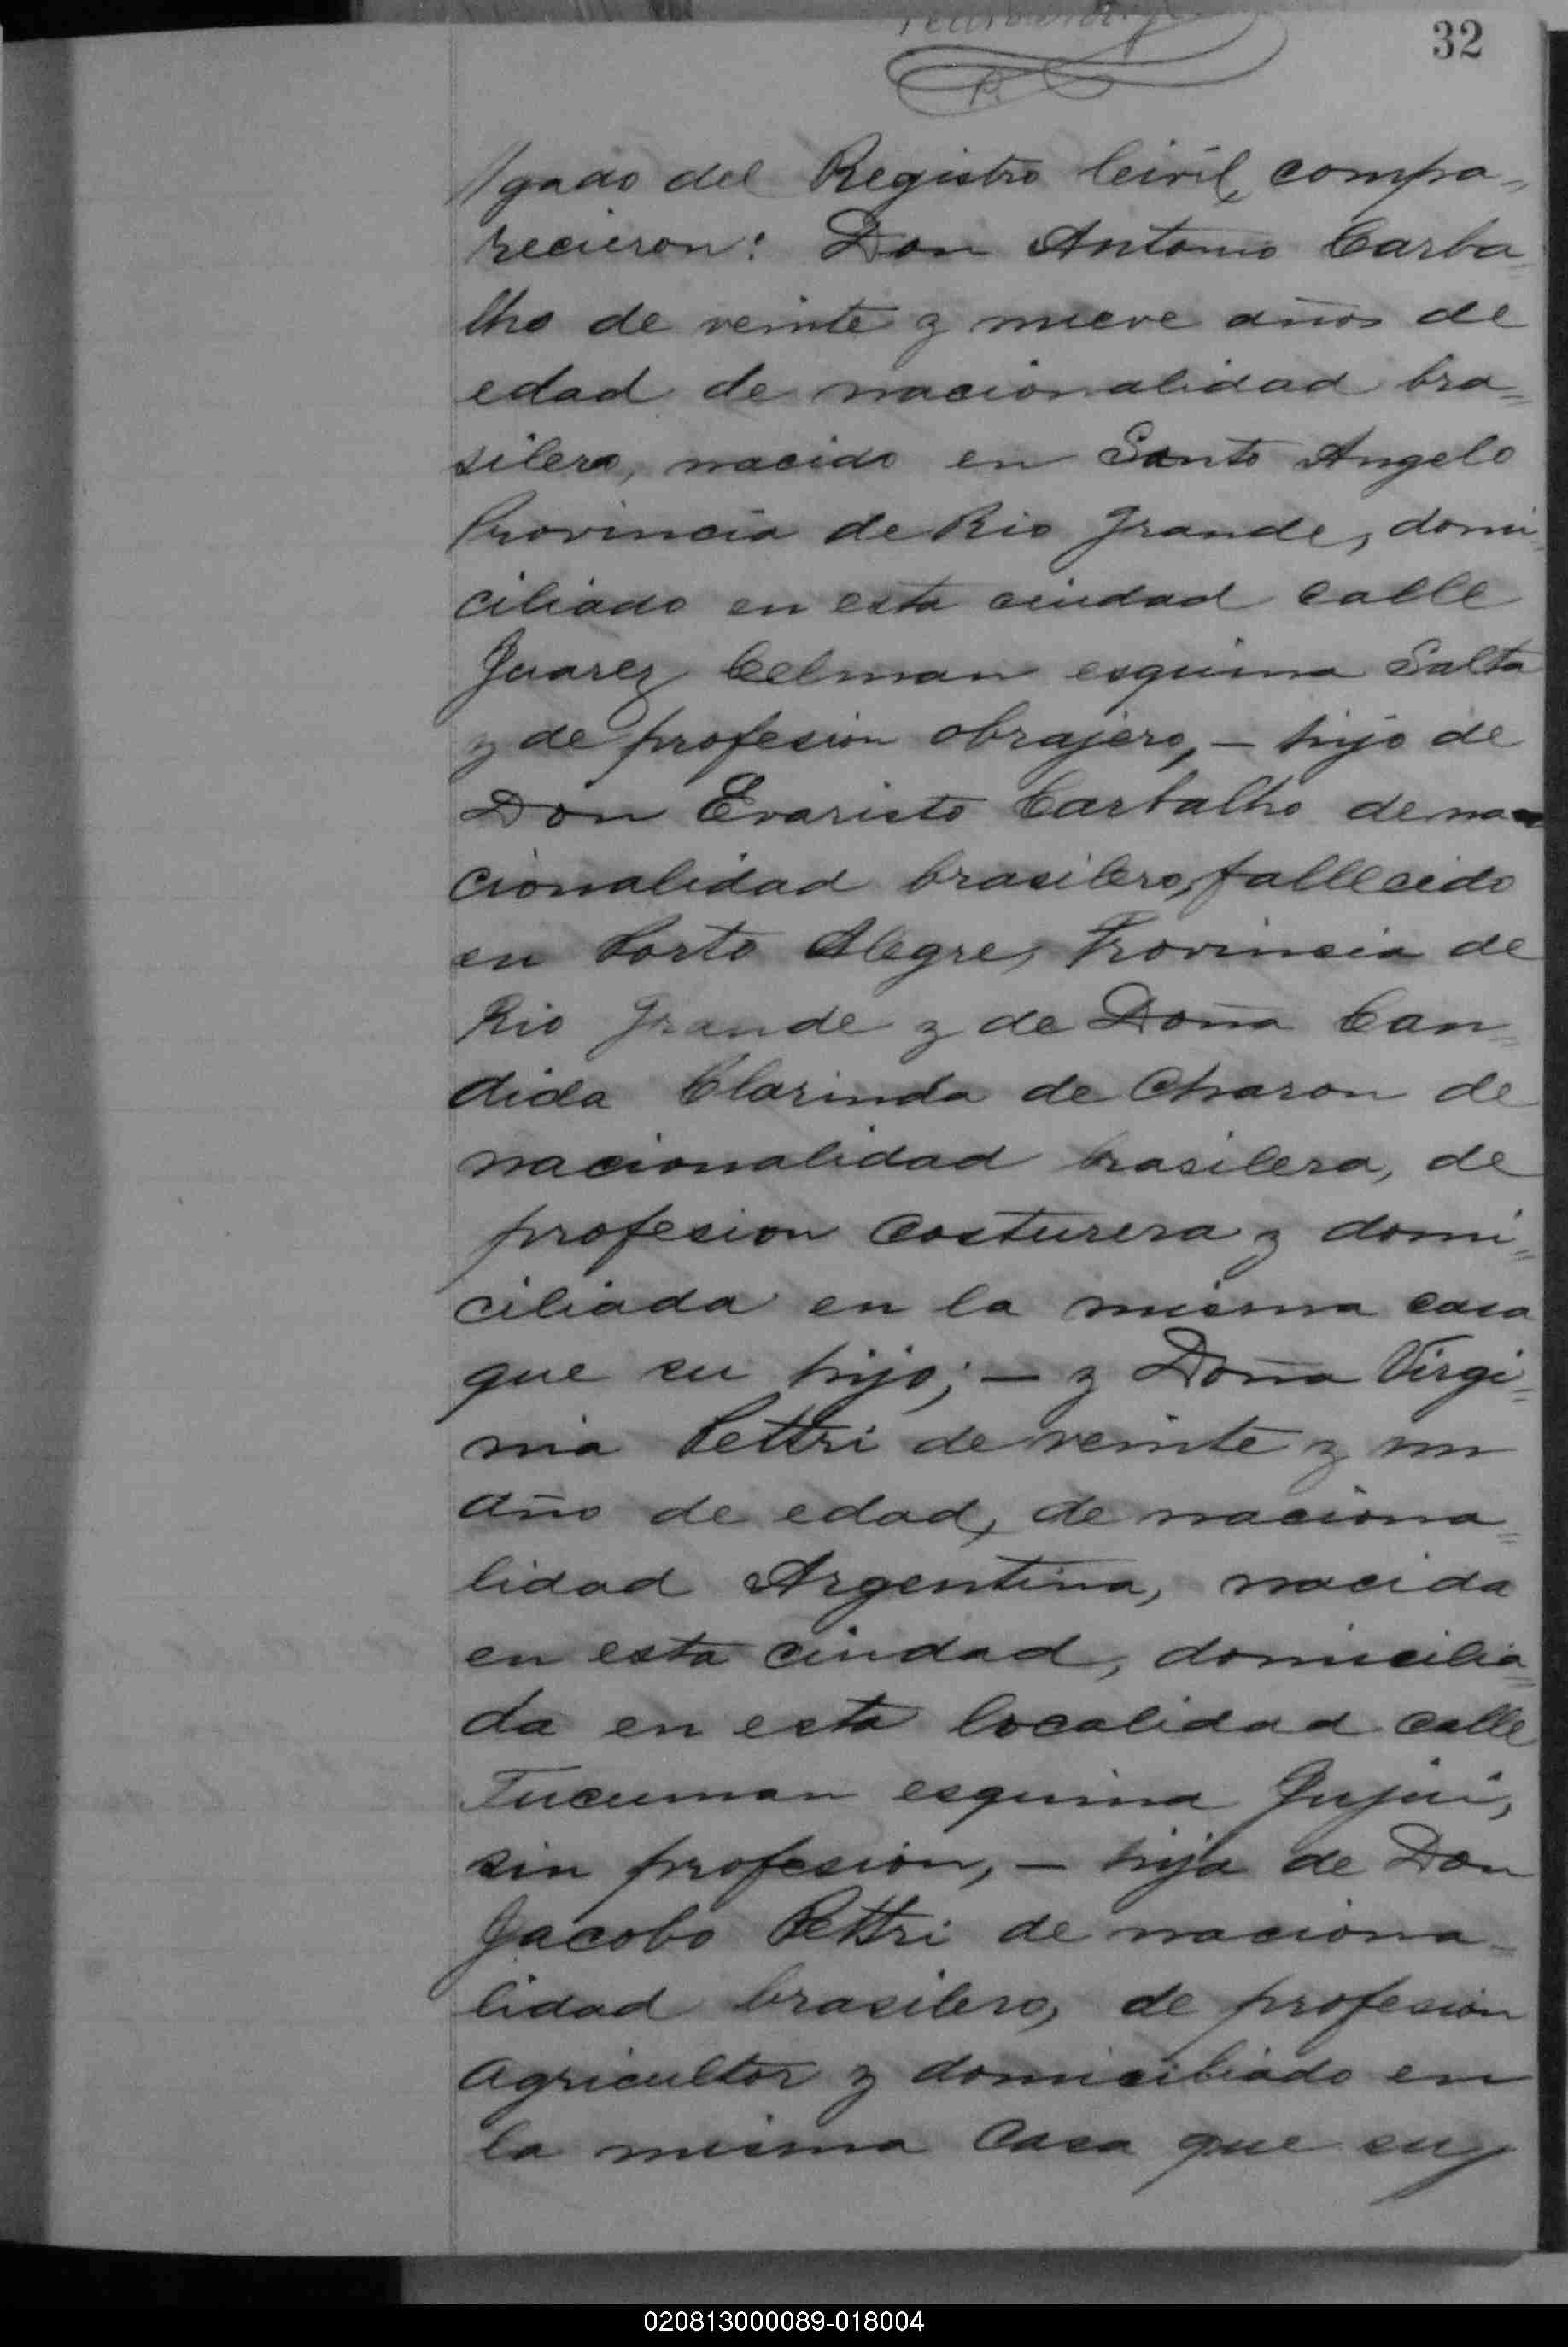 32
//gado del Registro Civil, compa=
recieron: Don Antonio Carba=
lho de veinte y nueve años de
edad de nacionalidad bra=
silera, nacido en Santo Angelo
Provincia de Rio Grande, domi=
ciliado en esta ciudad calle
Juarez Celman esquina Salta
y de profesion obrajero, – hijo de
Don Evaristo Carbalho de na=
cionalidad brasilero, fallecido
en Porto Alegre, Provincia de
Rio Grande y de Doña Can=
dida Clarinda de Charon de
nacionalidad brasilera, de
profesion costurera y domi=
ciliada en la misma casa
que su hijo; – y Doña Virgi=
nia Pettri de veinte y un
año de edad, de naciona=
lidad Argentina, nacida
en esta ciudad, domicilia=
da en esta localidad calle
Tucuman esquina Jujui,
sin profesion, – hija de Don
Jacobo Pettri de naciona=
lidad brasilero, de profesion
agricultor y domiciliado en
la misma casa que su
020813000089-018004